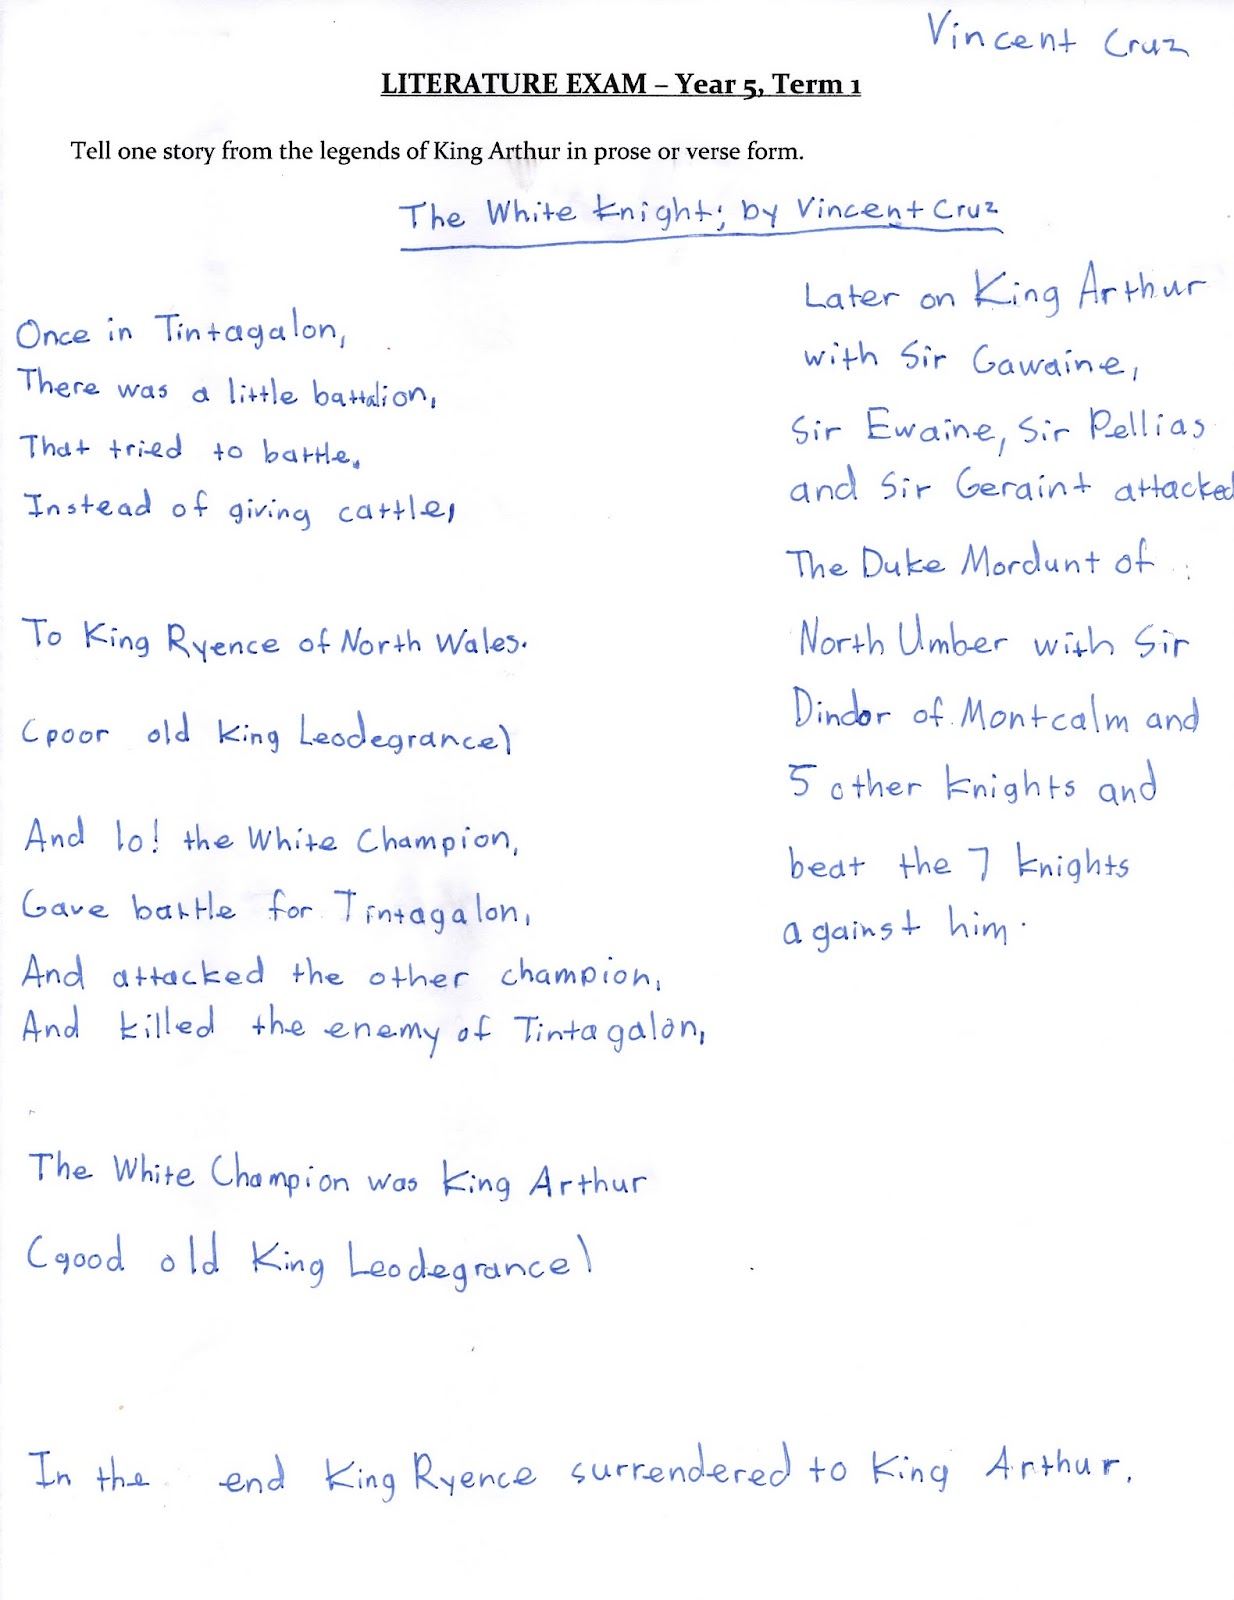 Vincent Cruz
LITERATURE EXAM – Year 5, Term 1
Tell one story from the legends of King Arthur in prose or verse form.
The White Knight; by Vincent Cruz
Once in Tintagalon,
There was a little battalion,
That tried to battle,
Instead of giving cattle,
To King Ryence of North Wales.
(poor old King Leodegrance)
And lo! the White Champion,
Gave battle for Tintagalon,
And attacked the other champion,
And killed the enemy of Tintagalon,
The White Champion was King Arthur
(good old King Leodegrance)
Later on King Arthur
with Sir Gawaine,
Sir Ewaine, Sir Pellias
and Sir Geraint attacked
The Duke Mordunt of
North Umber with Sir
Dindor of Montcalm and
5 other knights and
beat the 7 knights
against him.
In the end King Ryence surrendered to King Arthur.